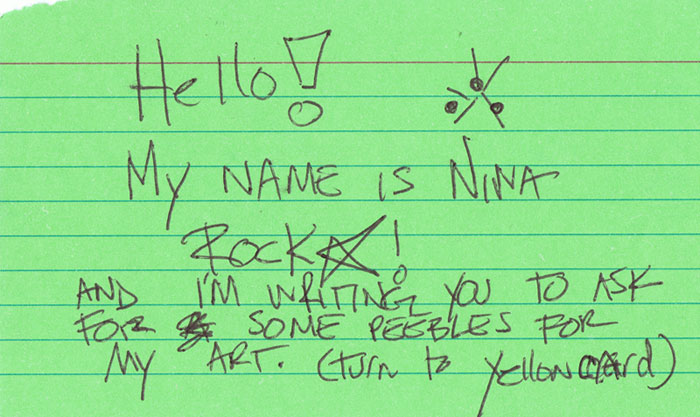 Hello!
My NAME is NINA
ROCK☆!
AND I'M WRITING YOU TO ASK
FOR SOME PEEBLES FOR
My ART. (turn to yellow card)